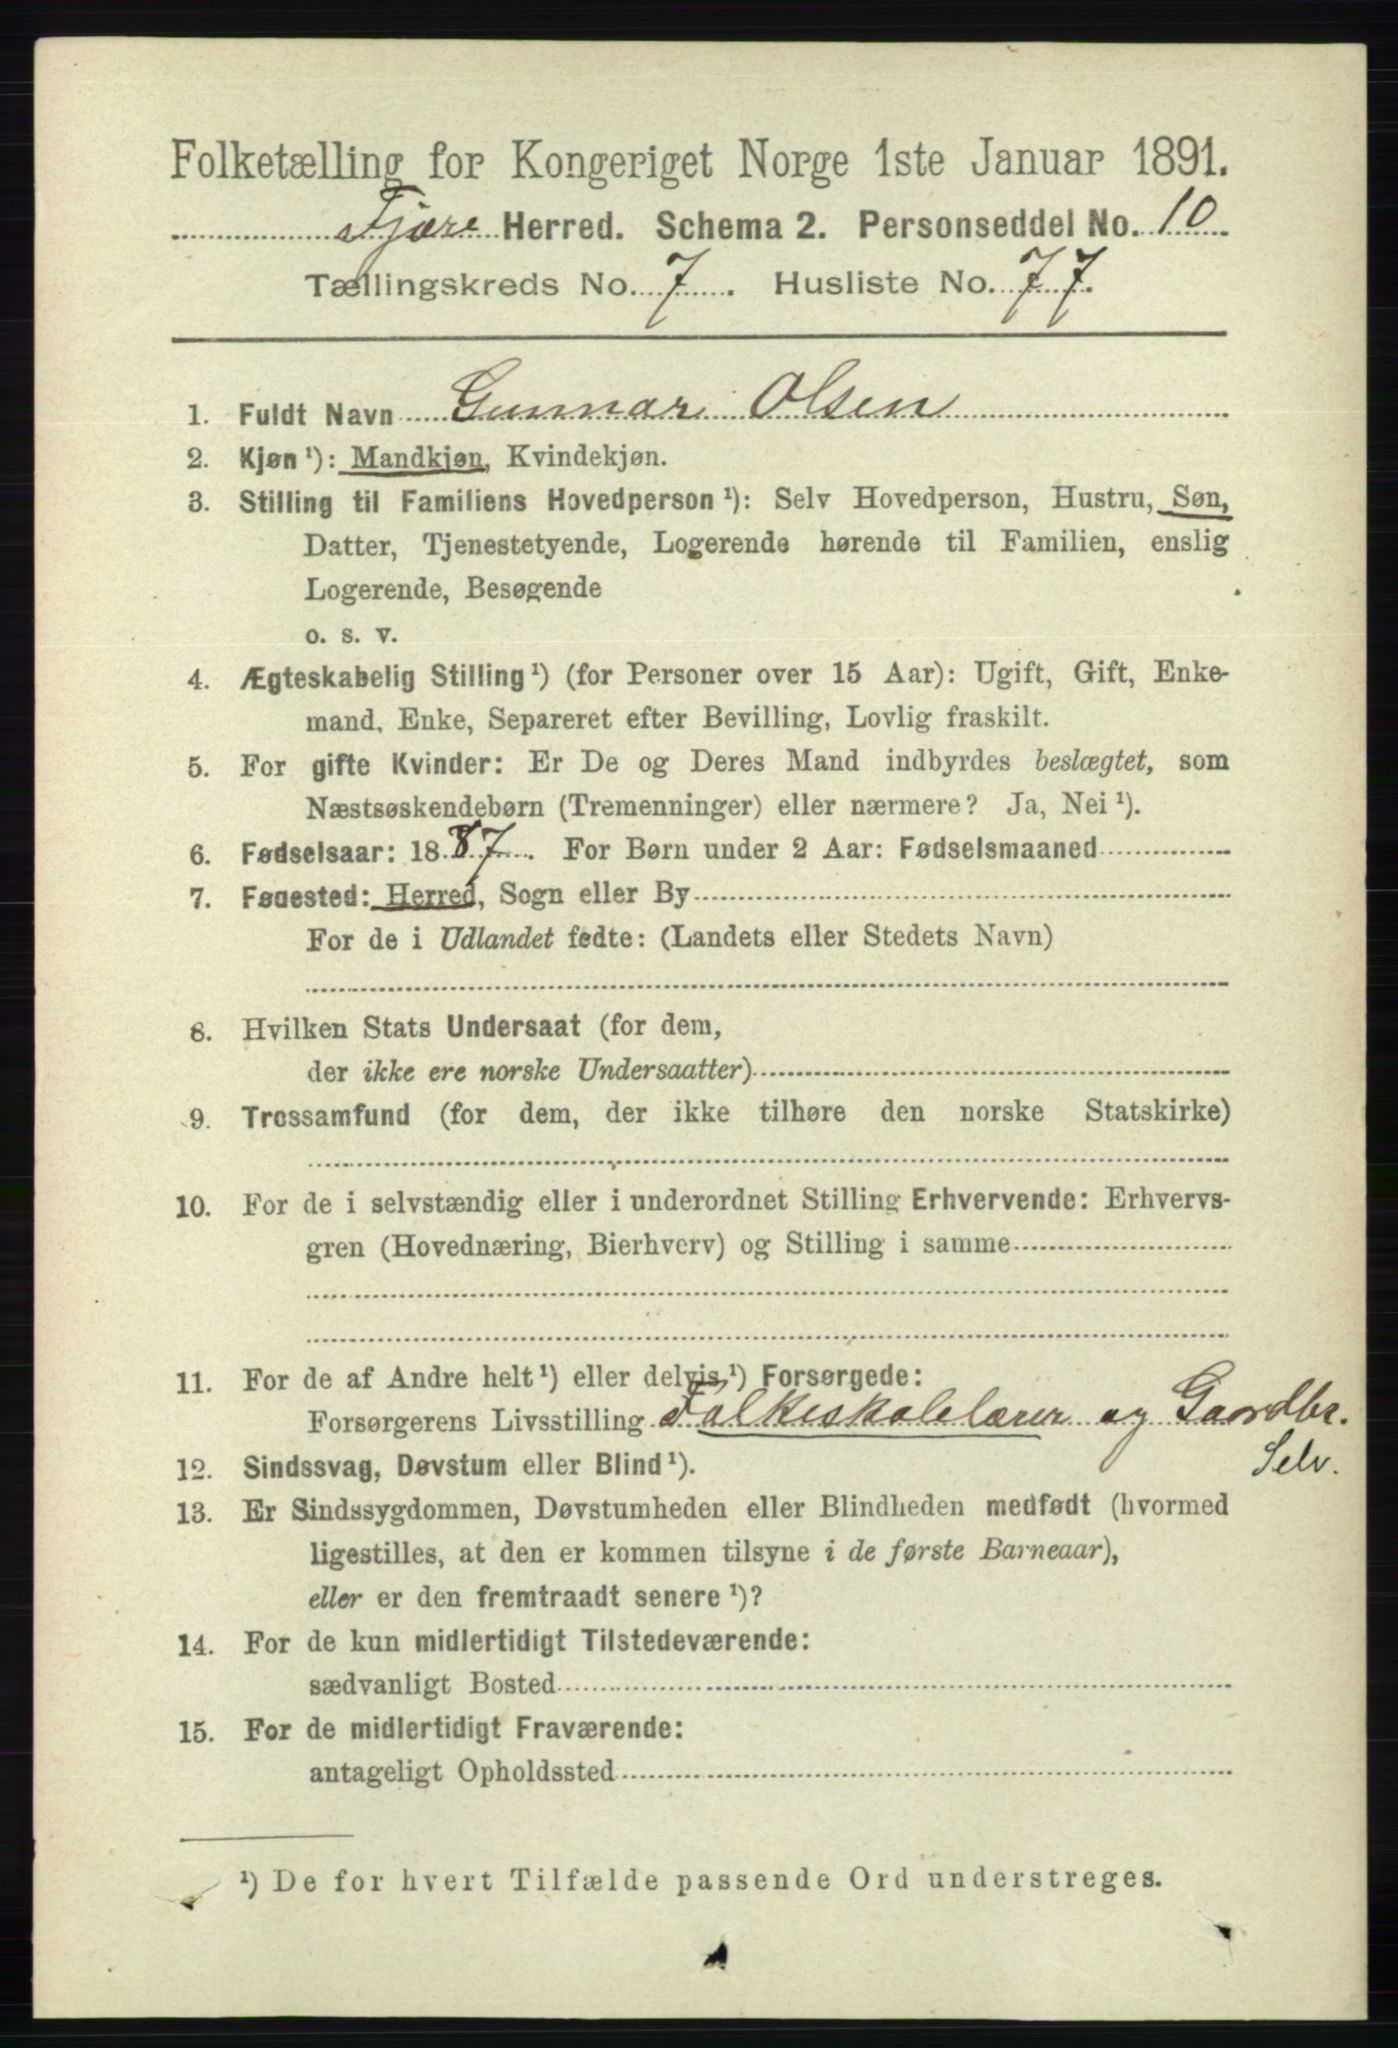 Folketælling for Kongeriget Norge 1ste Januar 1891.
Fjære Herred. Schema 2. Personseddel No. 10
Tællingskreds No. 7. Husliste No. 77.
1. Fuldt Navn Gunnar Olsen
2. Kjøn ¹): Mandkjøn, Kvindekjøn.
3. Stilling til Familiens Hovedperson ¹): Selv Hovedperson, Hustru, Søn,
Datter, Tjenestetyende, Logerende hørende til Familien, enslig
Logerende, Besøgende
o. s. v.
4. Ægteskabelig Stilling ¹) (for Personer over 15 Aar): Ugift, Gift, Enke-
mand, Enke, Separeret efter Bevilling, Lovlig fraskilt.
5. For gifte Kvinder: Er De og Deres Mand indbyrdes beslægtet, som
Næstsøskendebørn (Tremenninger) eller nærmere? Ja, Nei ¹).
6. Fødselsaar: 1887. For Børn under 2 Aar: Fødselsmaaned
7. Fødested: Herred, Sogn eller By
For de i Udlandet fødte: (Landets eller Stedets Navn)
8. Hvilken Stats Undersaat (for dem,
der ikke ere norske Undersaatter)
9. Trossamfund (for dem, der ikke tilhøre den norske Statskirke)
10. For de i selvstændig eller i underordnet Stilling Erhvervende: Erhvervs-
gren (Hovednæring, Bierhverv) og Stilling i samme
11. For de af Andre helt ¹) eller delvis ¹) Forsørgede:
Forsørgerens Livsstilling Folkeskolelærer og Gaardbr.
Selv.
12. Sindssvag, Døvstum eller Blind ¹).
13. Er Sindssygdommen, Døvstumheden eller Blindheden medfødt (hvormed
ligestilles, at den er kommen tilsyne i de første Barneaar),
eller er den fremtraadt senere ¹)?
14. For de kun midlertidigt Tilstedeværende:
sædvanligt Bosted
15. For de midlertidigt Fraværende:
antageligt Opholdssted
¹) De for hvert Tilfælde passende Ord understreges.